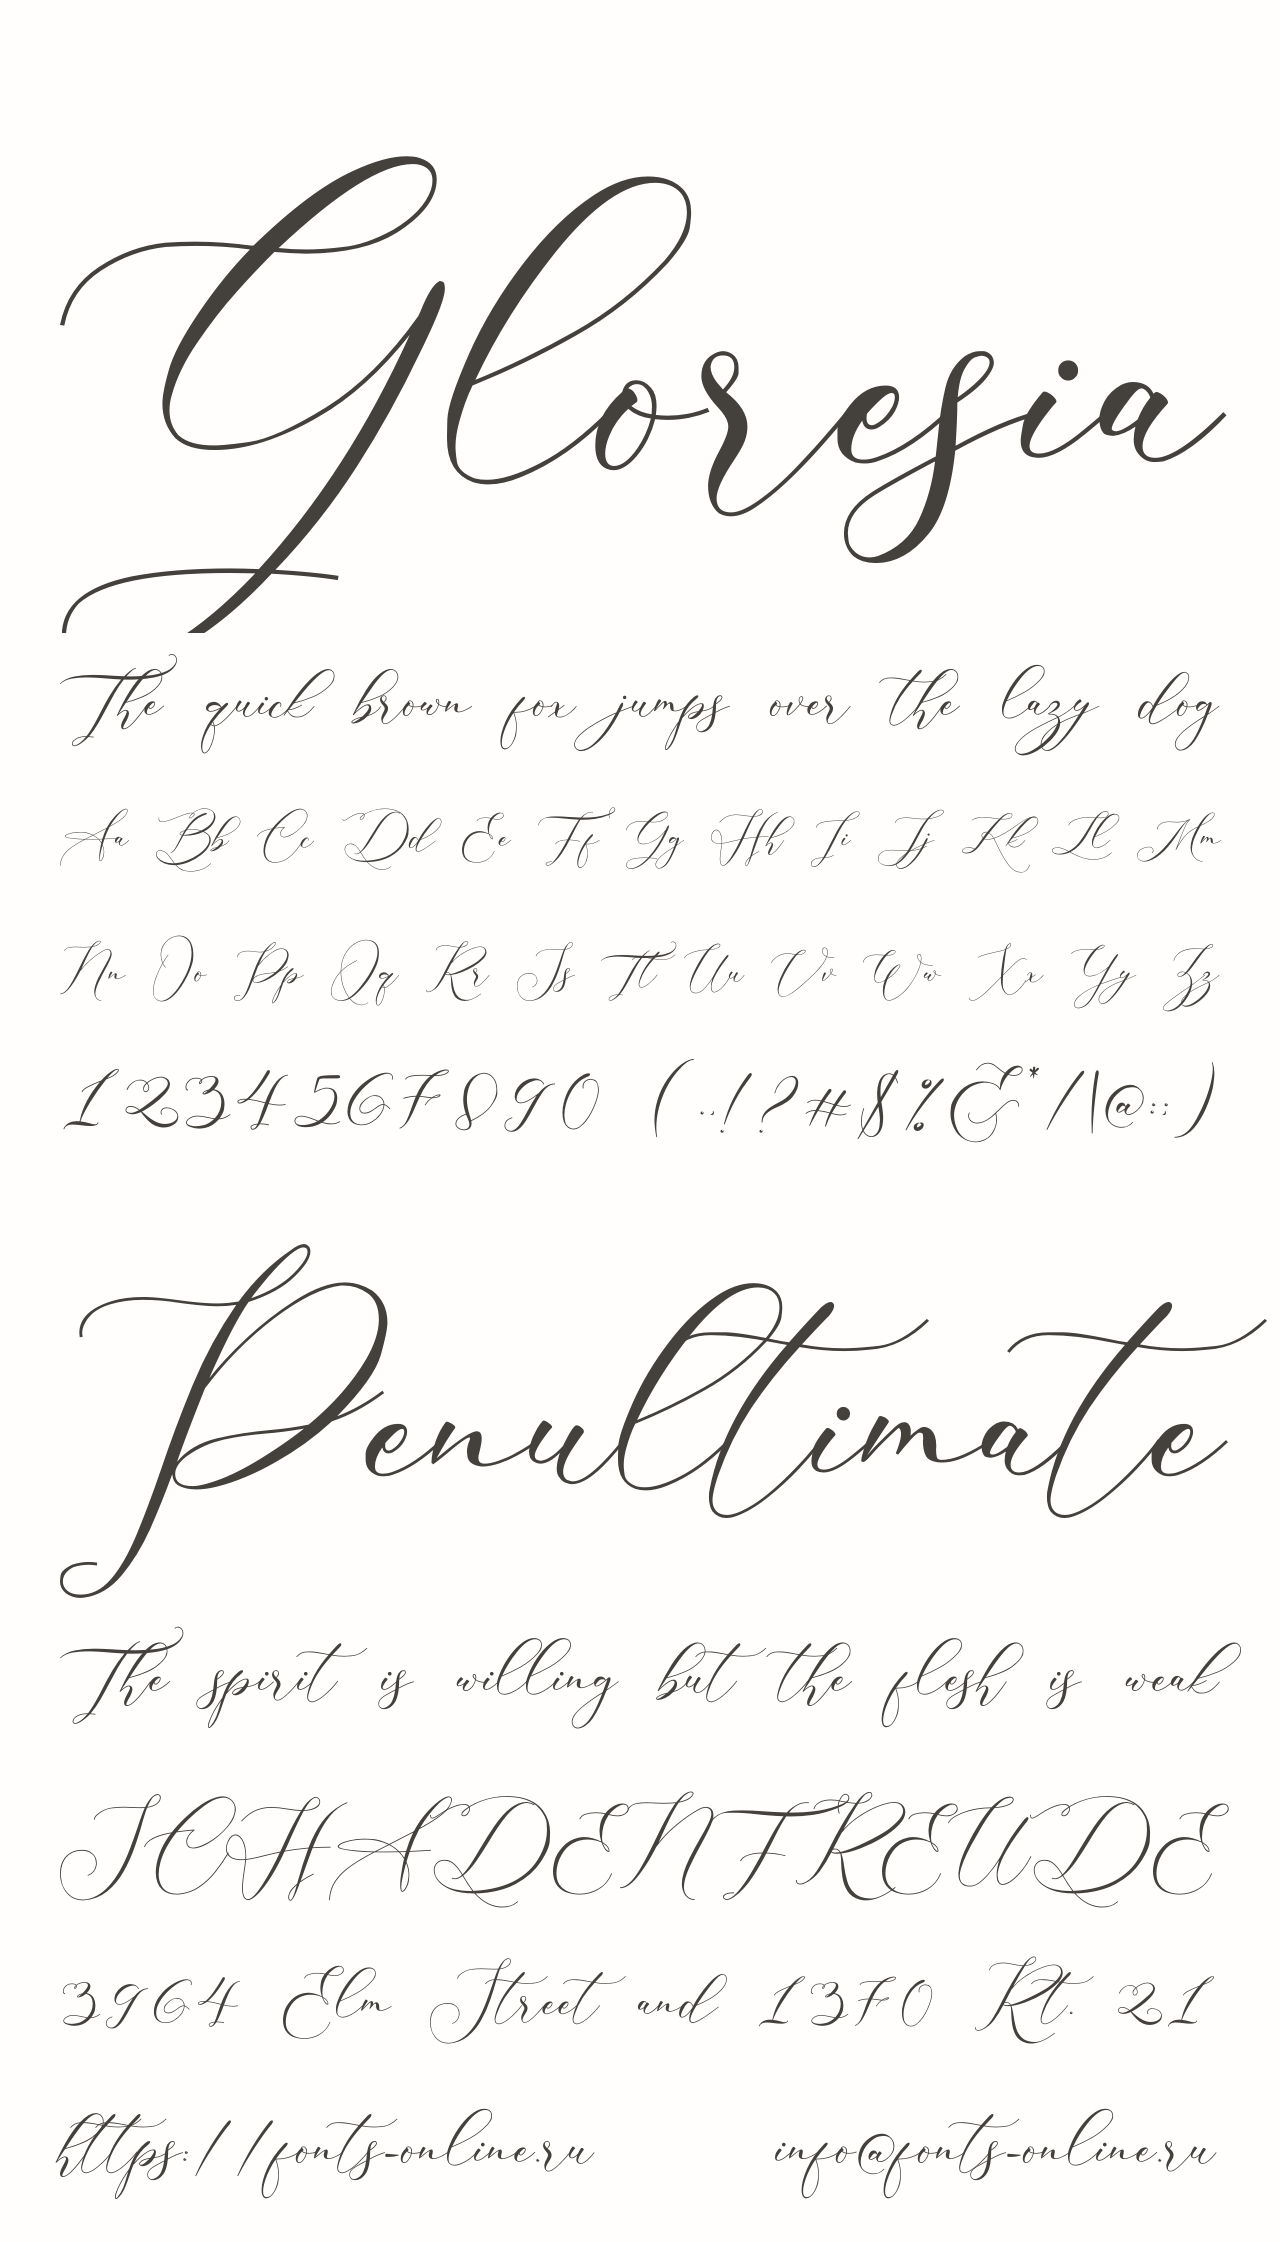 Gloresia
The quick brown fox jumps over the lazy dog
Aa Bb Cc Dd Ee Ff Gg Hh Ii Jj Kk Ll Mm
Nn Oo Pp Qq Rr Ss Tt Uu Vv Ww Xx Yy Zz
1234567890 (.,!?#$%&*/|\@:;)
Penultimate
The spirit is willing but the flesh is weak
SCHADENFREUDE
3964 Elm Street and 1370 Rt. 21
https://fonts-online.ru info@fonts-online.ru